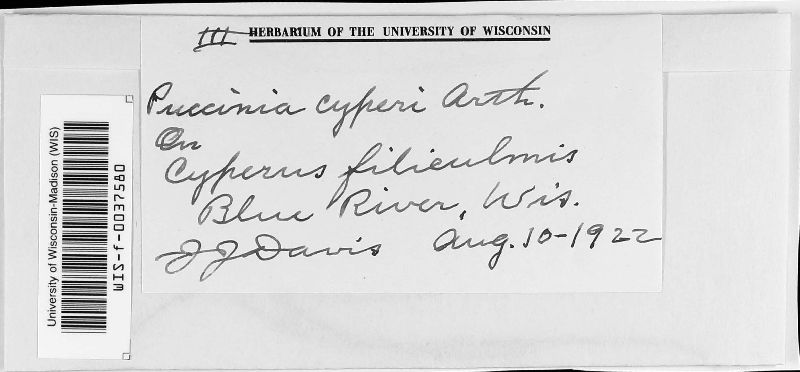 III HERBARIUM OF THE UNIVERSITY OF WISCONSIN
Puccinia cyperi Arth.
On
Cyperus filiculmis
Blue River, Wis.
J J Davis Aug. 10-1922
University of Wisconsin-Madison (WIS)
WIS-f-0037580